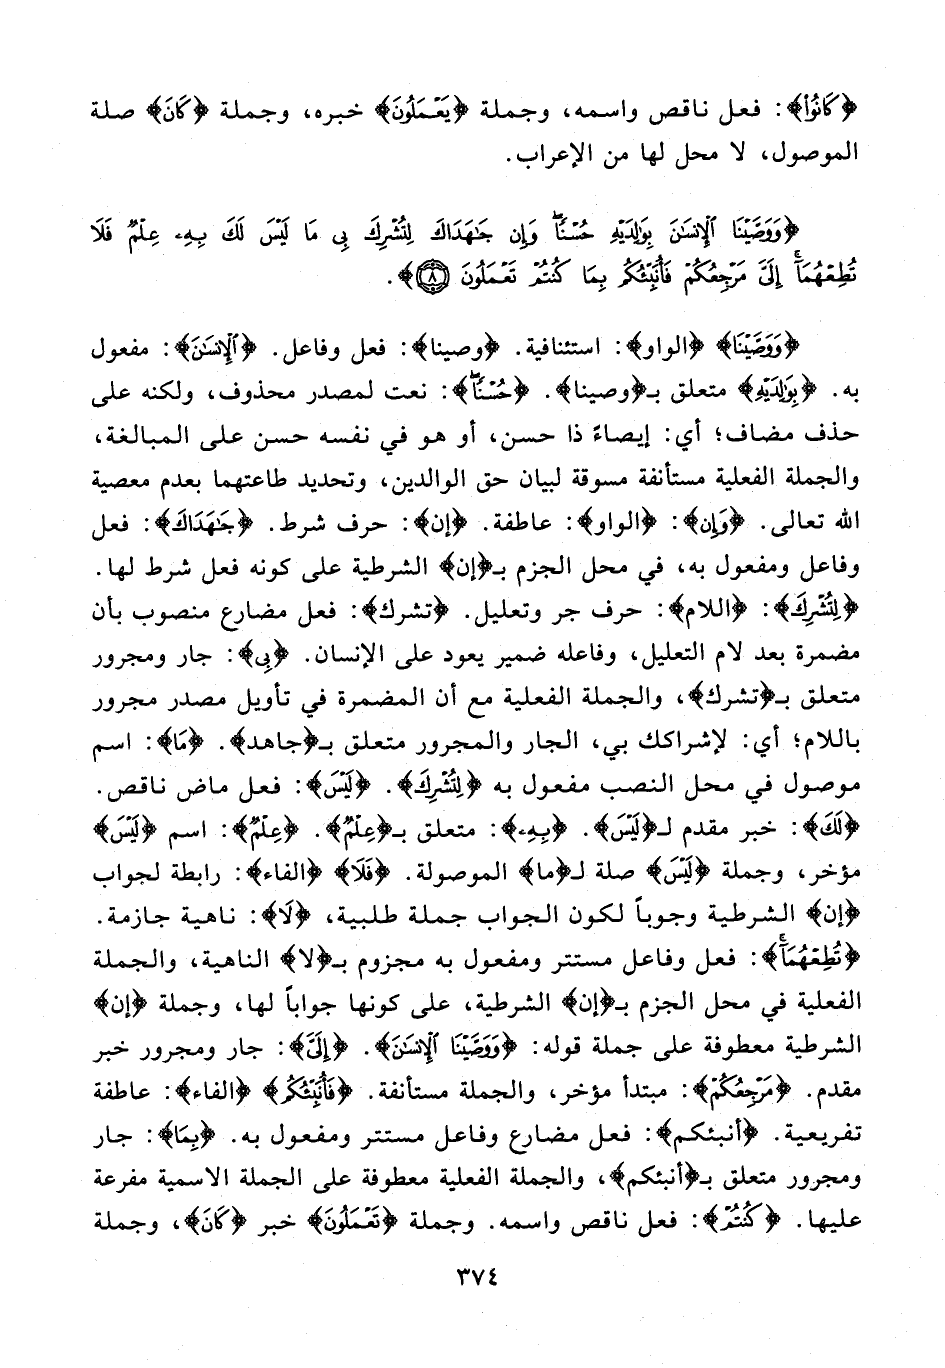 ﴿كَانُوا﴾: فعل ناقص واسمه، وجملة ﴿يَعْمَلُونَ﴾ خبره، وجملة ﴿كَانَ﴾ صلة
الموصول، لا محل لها من الإعراب.
﴿وَوَصَّيْنَا الْإِنسَانَ بِوَالِدَيْهِ حُسْنًا وَإِن جَاهَدَاكَ لِتُشْرِكَ بِي مَا لَيْسَ لَكَ بِهِ عِلْمٌ فَلَا
تُطِعْهُمَا إِلَيَّ مَرْجِعُكُمْ فَأُنَبِّئُكُم بِمَا كُنتُمْ تَعْمَلُونَ ٨﴾.
﴿وَوَصَّيْنَا﴾ ﴿الواو﴾: استئنافية. ﴿وصينا﴾: فعل وفاعل. ﴿الْإِنسَانَ﴾: مفعول
به. ﴿بِوَالِدَيْهِ﴾ متعلق بـ﴿وصينا﴾. ﴿حُسْنًا﴾: نعت لمصدر محذوف، ولكنه على
حذف مضاف؛ أي: إيصاءً ذا حسن، أو هو في نفسه حسن على المبالغة،
والجملة الفعلية مستأنفة مسوقة لبيان حق الوالدين، وتحديد طاعتهما بعدم معصية
الله تعالى. ﴿وَإِن﴾: ﴿الواو﴾: عاطفة. ﴿إن﴾: حرف شرط. ﴿جَاهَدَاكَ﴾: فعل
وفاعل ومفعول به، في محل الجزم بـ﴿إن﴾ الشرطية على كونه فعل شرط لها.
﴿لِتُشْرِكَ﴾: ﴿اللام﴾: حرف جر وتعليل. ﴿تشرك﴾: فعل مضارع منصوب بأن
مضمرة بعد لام التعليل، وفاعله ضمير يعود على الإنسان. ﴿بِي﴾: جار ومجرور
متعلق بـ﴿تشرك﴾، والجملة الفعلية مع أن المضمرة في تأويل مصدر مجرور
باللام؛ أي: لإشراكك بي، الجار والمجرور متعلق بـ﴿جاهد﴾. ﴿مَا﴾: اسم
موصول في محل النصب مفعول به ﴿لِتُشْرِكَ﴾. ﴿لَيْسَ﴾: فعل ماض ناقص.
﴿لَكَ﴾: خبر مقدم لـ﴿لَيْسَ﴾. ﴿بِهِ﴾: متعلق بـ﴿عِلْمٌ﴾. ﴿عِلْمٌ﴾: اسم ﴿لَيْسَ﴾
مؤخر، وجملة ﴿لَيْسَ﴾ صلة لـ﴿ما﴾ الموصولة. ﴿فَلَا﴾ ﴿الفاء﴾: رابطة لجواب
﴿إن﴾ الشرطية وجوباً لكون الجواب جملة طلبية، ﴿لَا﴾: ناهية جازمة.
﴿تُطِعْهُمَا﴾: فعل وفاعل مستتر ومفعول به مجزوم بـ﴿لا﴾ الناهية، والجملة
الفعلية في محل الجزم بـ﴿إن﴾ الشرطية، على كونها جواباً لها، وجملة ﴿إن﴾
الشرطية معطوفة على جملة قوله: ﴿وَوَصَّيْنَا الْإِنسَانَ﴾. ﴿إِلَيَّ﴾: جار ومجرور خبر
مقدم. ﴿مَرْجِعُكُمْ﴾: مبتدأ مؤخر، والجملة مستأنفة. ﴿فَأُنَبِّئُكُم﴾ ﴿الفاء﴾: عاطفة
تفريعية. ﴿أنبئكم﴾: فعل مضارع وفاعل مستتر ومفعول به. ﴿بِمَا﴾: جار
ومجرور متعلق بـ﴿أنبئكم﴾، والجملة الفعلية معطوفة على الجملة الاسمية مفرعة
عليها. ﴿كُنتُمْ﴾: فعل ناقص واسمه. وجملة ﴿تَعْمَلُونَ﴾ خبر ﴿كَانَ﴾، وجملة
٣٧٤